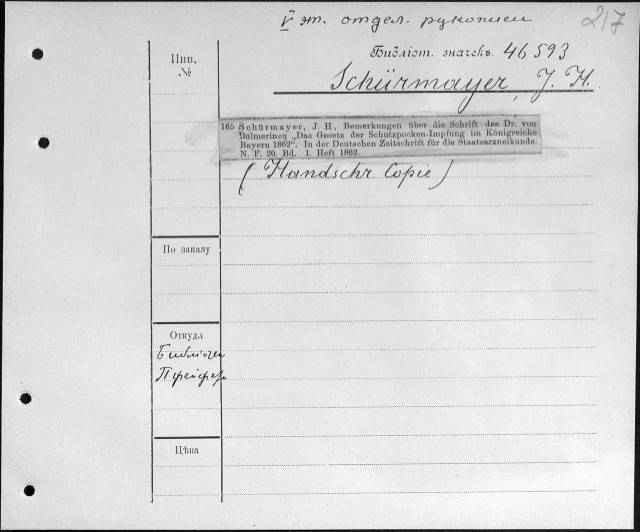 V эт. отдел. рукописи
217
Библіот. значекъ. 46593
Инв.
№
Schürmayer, J. H.
165 Schürmayer, J. H., Bemerkungen über die Schrift des Dr. von
Bulmerincq „Das Gesetz der Schutzpocken-Impfung im Königreiche
Bayern 1862“. In der Deutschen Zeitschrift für die Staatsarzneikunde.
N. F. 20. Bd. I. Heft 1862.
(Handschr Copie)
По заказу
Откуда
Библіотеки
Цѣна